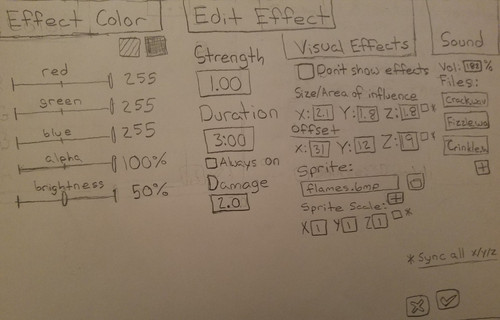 Effect Color
red 255
green 255
blue 255
alpha 100%
brightness 50%
Edit Effect
Strength
1.00
Duration
3:00
Always on
Damage
2.0
Visual Effects
Don't show effects
Size/Area of influence
X: 2.1 Y: 1.8 Z: 1.8 *
Offset
X: 31 Y: 12 Z: 19 *
Sprite:
flames.bmp
+
Sprite Scale:
X 1 Y 1 Z 1 *
Sound
Vol. %
Files:
Crack.wav
Fizzle.wa
Crinkle.w
+
* Sync all X/Y/Z
X ✓